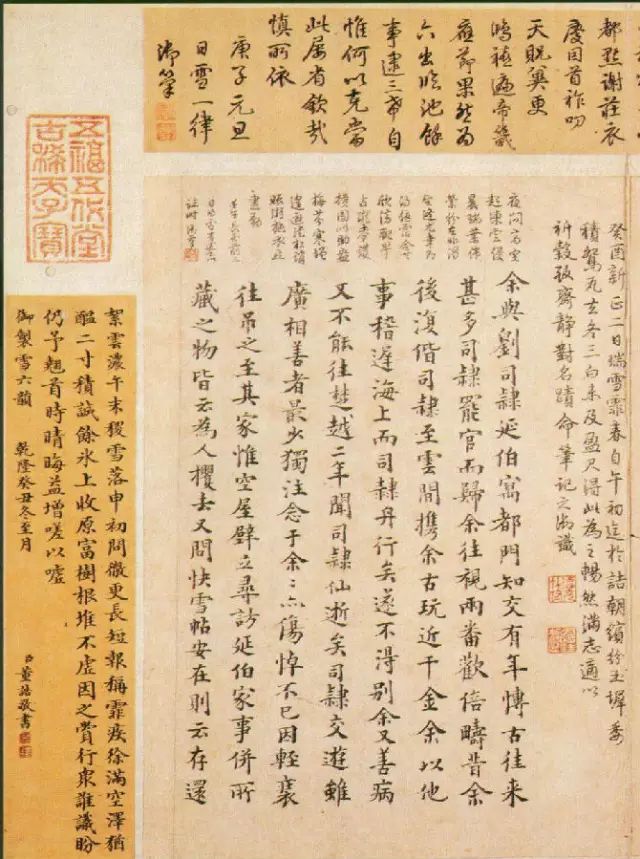 都點謝莊衣
慶因首祚叨
天貺冀更
鴻禧遍帝畿
應節果然為
六出臨池餘
事逮三希自
惟何以克當
此屢省欽哉
慎所依
庚子元旦
日雪一律
御筆
五福五代堂
古稀天子寶
癸酉新正一日瑞雪霏春自午初迄於詰朝繽紛玉墀委
積鴛瓦去冬三白未及盈尺得此為之暢然滿志適以
祈穀致齋靜對名蹟命筆記之御識
余與劉司隷延伯寓都門知交有年慱古往來
甚多司隷罷官而歸余往視兩番歡倍疇昔余
後復偕司隷至雲間携余古玩近千金余以他
事稽遲海上而司隷丹行矣遂不得別余又善病
又不能往楚越二年聞司隷仙逝矣司隷交遊雖
廣相善者最少獨注念于余々亦傷悼不已因輕裘
往吊之至其家惟空屋壁立尋訪延伯家事併所
藏之物皆云為人攫去又問快雪帖安在則云存還
絮雲濃午未稷雪落申初問徹更長短報稱霏疾徐滿空澤猶
醖二寸積誠餘氷上收原富樹根堆不虛因之賞行衆誰議盼
仍予翹首時晴晦益增嗟以噓
御製雪六韻 乾隆癸丑冬至月
臣董誥敬書